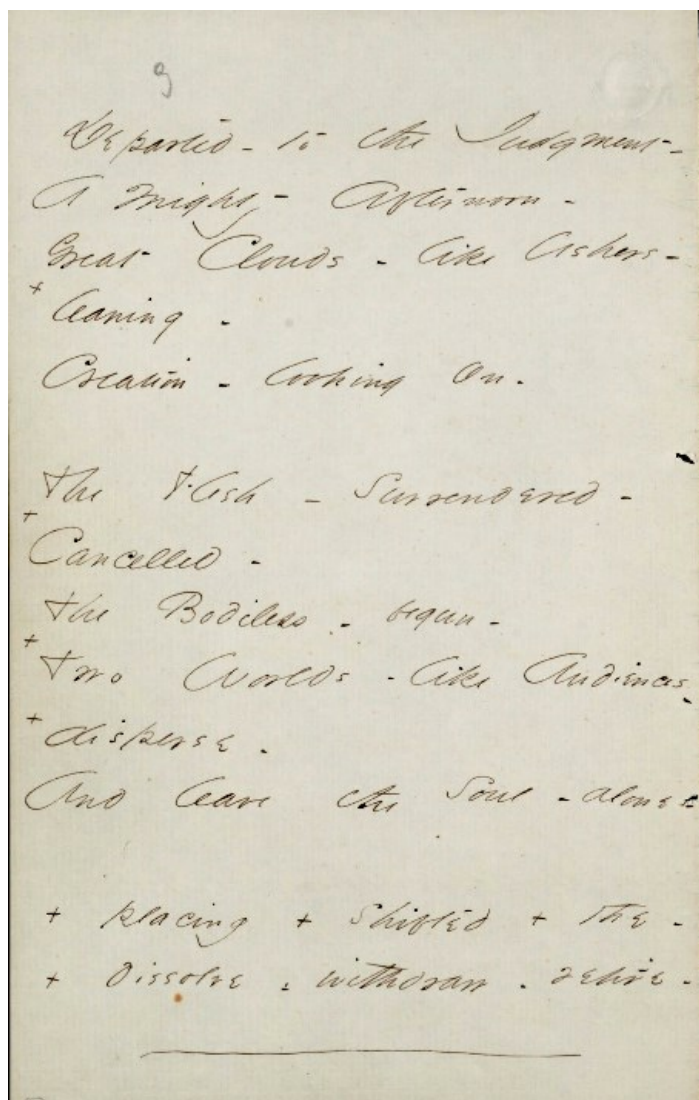 9
Departed - to the Judgment -
A Mighty - Afternoon -
Great Clouds - like Ushers -
+ leaning -
Creation - looking On -
The Flesh - Surrendered -
+ Cancelled -
The Bodiless - begun -
+ Two Worlds - like Audiences -
+ disperse -
And leave the Soul - alone -
+ placing + Shifted + the -
+ Dissolve - withdraw - retire -